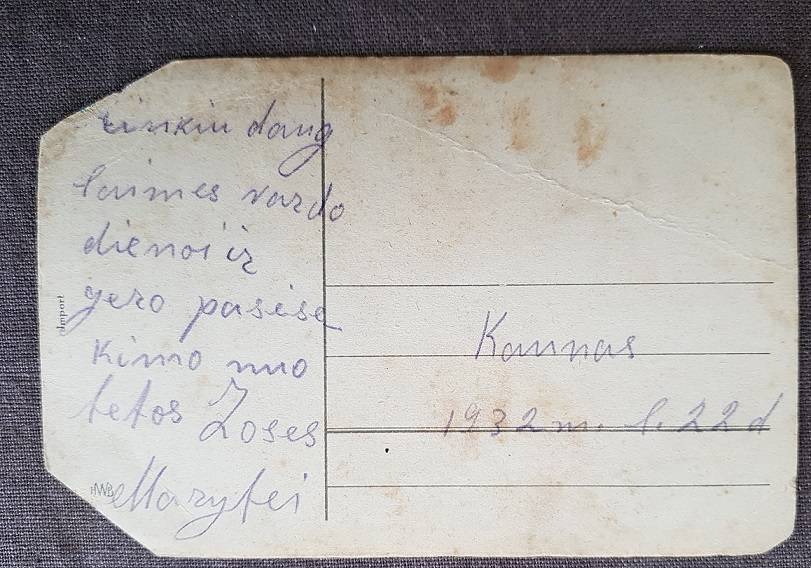 Linkiu daug
laimes vardo
dienoi ir
gero pasise
kimo nuo
tetos Zoses
Marytei
Import
HWB
Kaunas
1932 m. l. 22 d